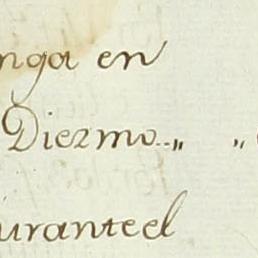 nga en
Diezmo..„ „
uranteel